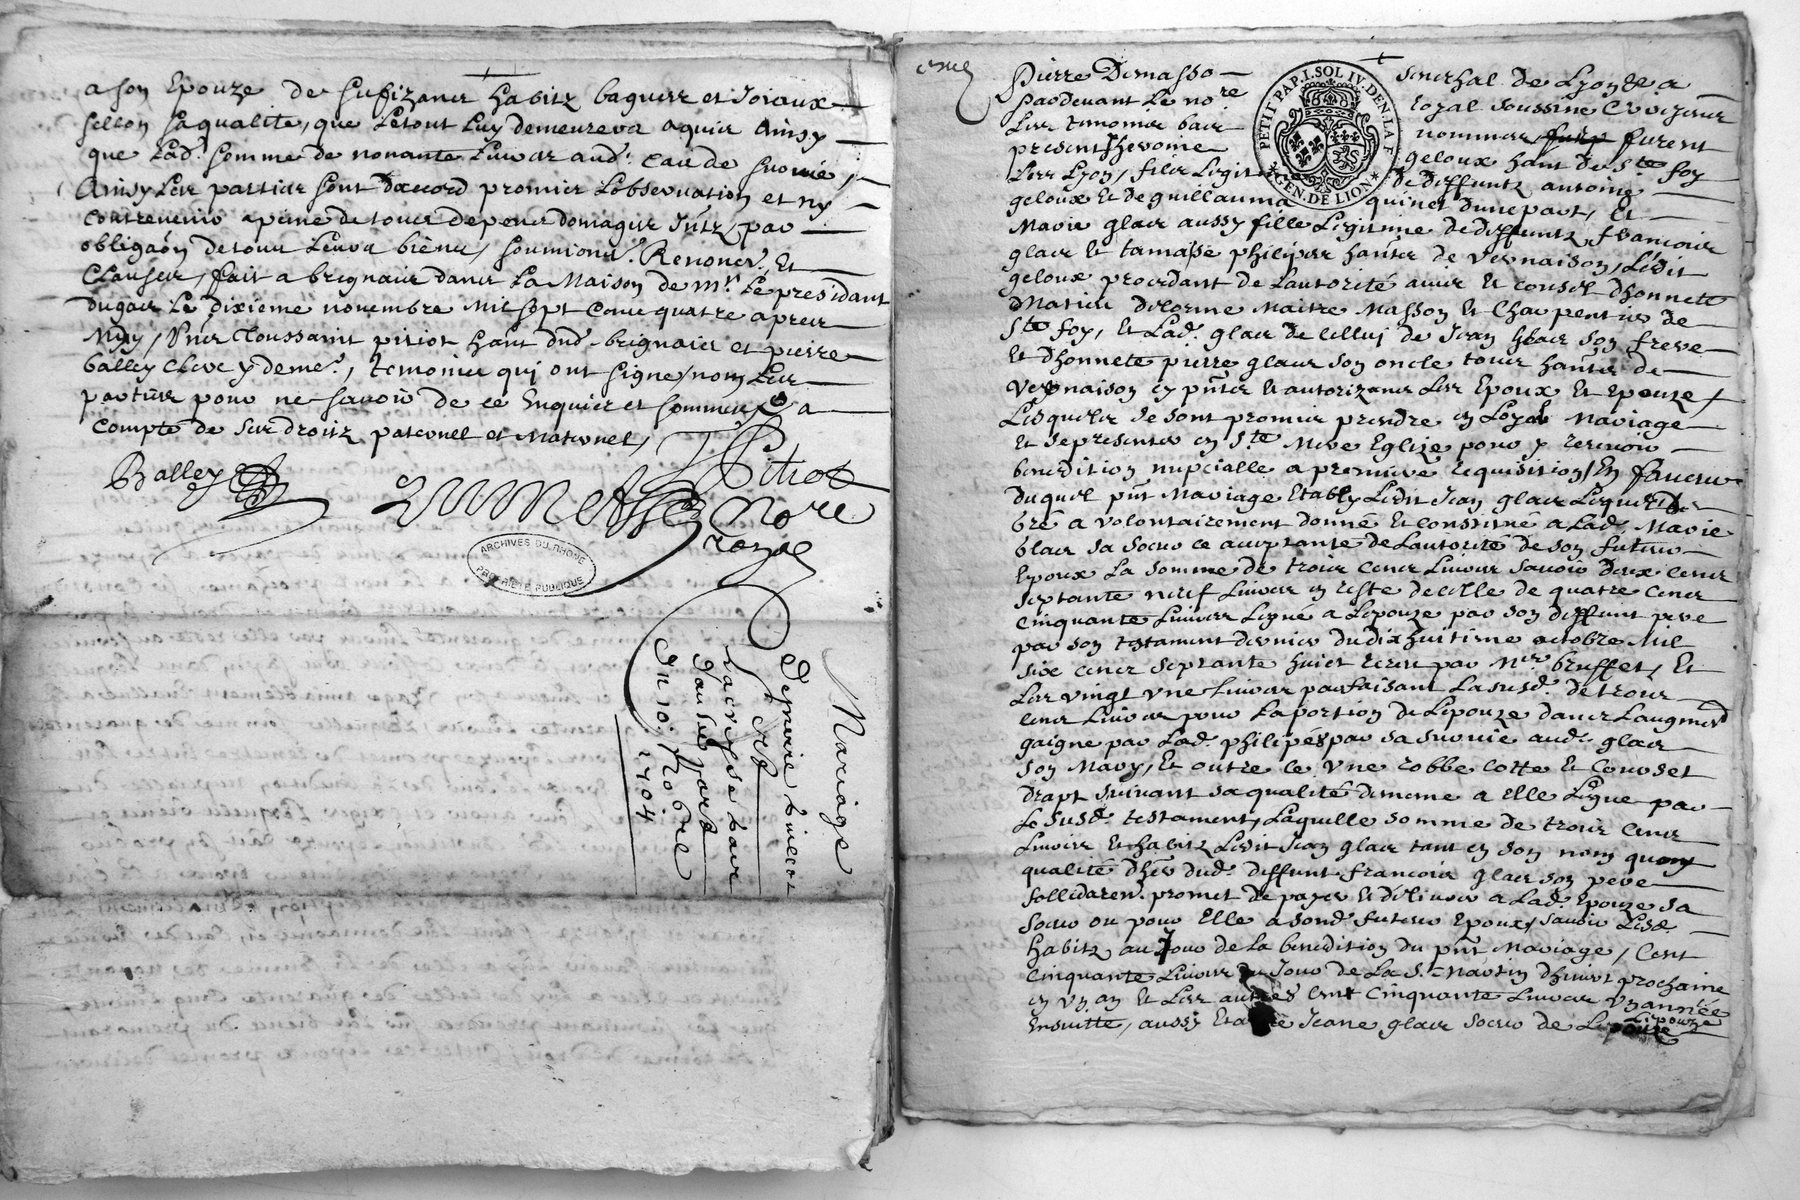 a son Epouze de suffizance habitz bagues et Joiaux
sellon sa qualité, que le tout luy demeurera aquis Ainsy
que Lad. somme de nonante Livres aud. cas de survie,
Ainsy les parties sont d'accord promis L'observation et ny
contrevenir a peine de tous depens domages Intz, par
obligaõn de tous leurs biens, soumions. Renonces, Et
Clauses, fait a brignais dans La Maison de Mr. Le presidant
dugas Le dixieme novembre Mil sept cens quatre apres
Midy, Toussaint pitiot hant dud. brignais et pierre
balley Clerc y deme., temoins qui ont signé, non les
parties pour ne savoir de ce Enquis et sommés, a
Compte de ses droitz paternel et Maternel,
Balley
JPitiot
nore
royal
ARCHIVES DU RHONE
PROPRIÉTÉ PUBLIQUE
Mariage
gausur
Du 10. 9bre
1704
Pierre Demasso
senechal de Lyon &a
Pardevant Le nore
royal soussigné Et
Les temoins bas
nommes furent
present Jherome
geloux hant de Ste foy
Les Lyon, fils Legit
De deffuntz antoine
PETIT PAP. I. SOL IV. DEN. LA F.
GEN. DE LION
geloux Et de guillauma
quinet d'une part, Et
Marie glas aussy fille Legitime de deffuntz françois
glas Et tamasse philipes hantes de Vernaison, Ledit
geloux procedant de L'autorité avis Et conseil d'honnete
Matieu delorme Maitre Masson Et Charpentier de
Ste foy, Et Lad. glas de celluy de Jean glas son frere
Et d'honnete pierre glas son oncle tous hantes de
Vernaison cy pñtes Et autorizans Les Epoux Et Epouze,
Lesquels se sont promis prendre en Loyal Mariage
Et se presenter en Ste Mere Eglise pour y recevoir
benedition nupcialle a premiere requisition, En faveur
duquel pñt Mariage Etably Ledit Jean glas Lequel de
gré a volontairement donné Et constitué a Lad. Marie
glas sa soeur ce acceptante de L'autorité de son futur
Epoux La somme de trois cens Livres savoir deux cens
septante neuf Livres en reste de celle de quatre cens
cinquante Livres Legué a L'epouze par son deffunt pere
par son testament dernier du dix huitieme octobre Mil
six cens septante huict receu par Mre. bruffet, Et
Les vingt une Livres parfaisant La susd. de trois
cens Livres pour La portion de L'epouze dans L'augment
gaigné par Lad. philipes par sa survie aud. glas
son Mary, Et outre ce Une robbe cotte Et Corset
drapt suivant sa qualité de meme a elle Legué par
Le susd. testament, Laquelle somme de trois cens
Livres Et habitz Ledit Jean glas tant en son nom qu'en
qualité d'her dud. deffunt françois glas son pere
sollidaren. promet de payer Et delivrer a Lad. Epouze sa
soeur ou pour Elle a sond. futur Epoux, savoir Lesd.
habitz au Jour de La benedition du pñt Mariage, Cent
Cinquante Livres du Jour de La S. Martin d'hiver prochaine
en un an Et Les autres cent cinquante Livres un année
Ensuitte, aussy Jeane glas soeur de L'epouze
L'epouze